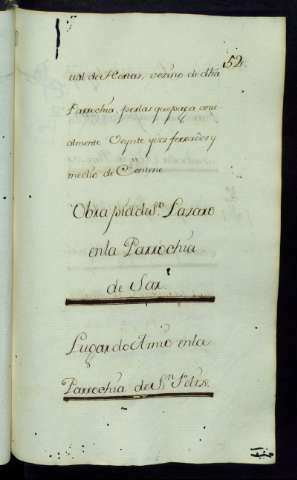 52.
ual de Heras, vecino de dha
Parrochia, porlas quepaga anu
almente Veynte ytres ferrados y
medio de Zenteno
Obra pia de Sn. Lazaro
en la Parrochia
de Sar.
Lugar do Amio enla
Parrochia de Sn. Felix.